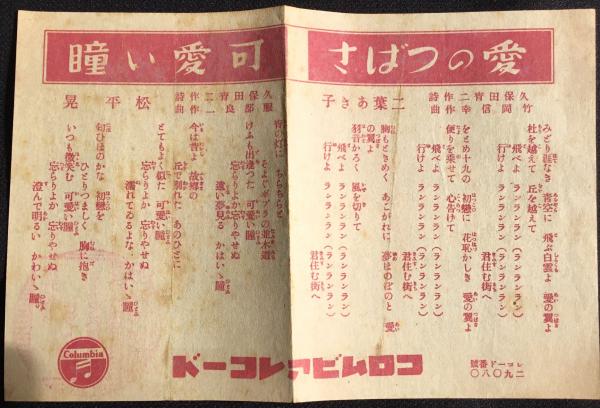 愛のつばさ
久保田宵二作詩
竹岡信幸作曲
二葉あき子
みどり涯なき 青空に 飛ぶ白雲よ 愛の翼よ
杜を越えて 丘を越えて
飛べよ ランランラン(ランランラン)
行けよ ランランラン(ランランラン)
君住む街へ
をとめ十九の 初戀に 花恥かしき 愛の翼よ
便りを乘せて 心告げて
飛べよ ランランラン(ランランラン)
行けよ ランランラン(ランランラン)
君住む街へ
胸もときめく あこがれに 夢はほのぼのと 愛の翼よ
羽音かろく 風を切りて
飛べよ ランランラン(ランランラン)
行けよ ランランラン(ランランラン)
君住む街へ
可愛い瞳
久保田宵二作詩
服部良一作曲
松平晃
青い灯に ちらちらと
そよぐポプラの並木道
けふも出逢つた 可愛い瞳
忘らりよか忘りやせぬ
遠い夢見る かはいゝ瞳
今は昔よ 故郷の
丘で別れた あのひとに
とてもよく似た 可愛い瞳
忘らりよか 忘りやせぬ
濡れてゐるよな かはいゝ瞳
匂ひほのかな 初戀を
ひとりつましく 胸に抱き
いつも微笑む 可愛い瞳
忘らりよか 忘りやせぬ
澄んで明るい かわいゝ瞳
レコード番號
二九〇八〇
コロムビアレコード
Columbia